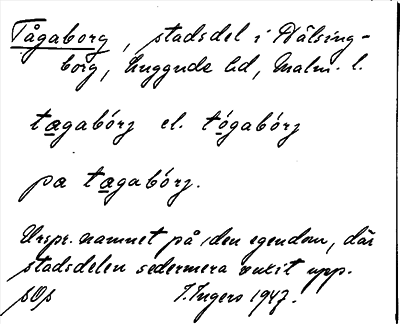 Tågaborg, stadsdel i Hälsing-
borg, Luggude hd, Malm. l.
tægabórg el. tógabórg
pa tægabórg.
Urspr. namnet på den egendom, där
stadsdelen sedermera vuxit upp.
pOp I. Ingers 1947.